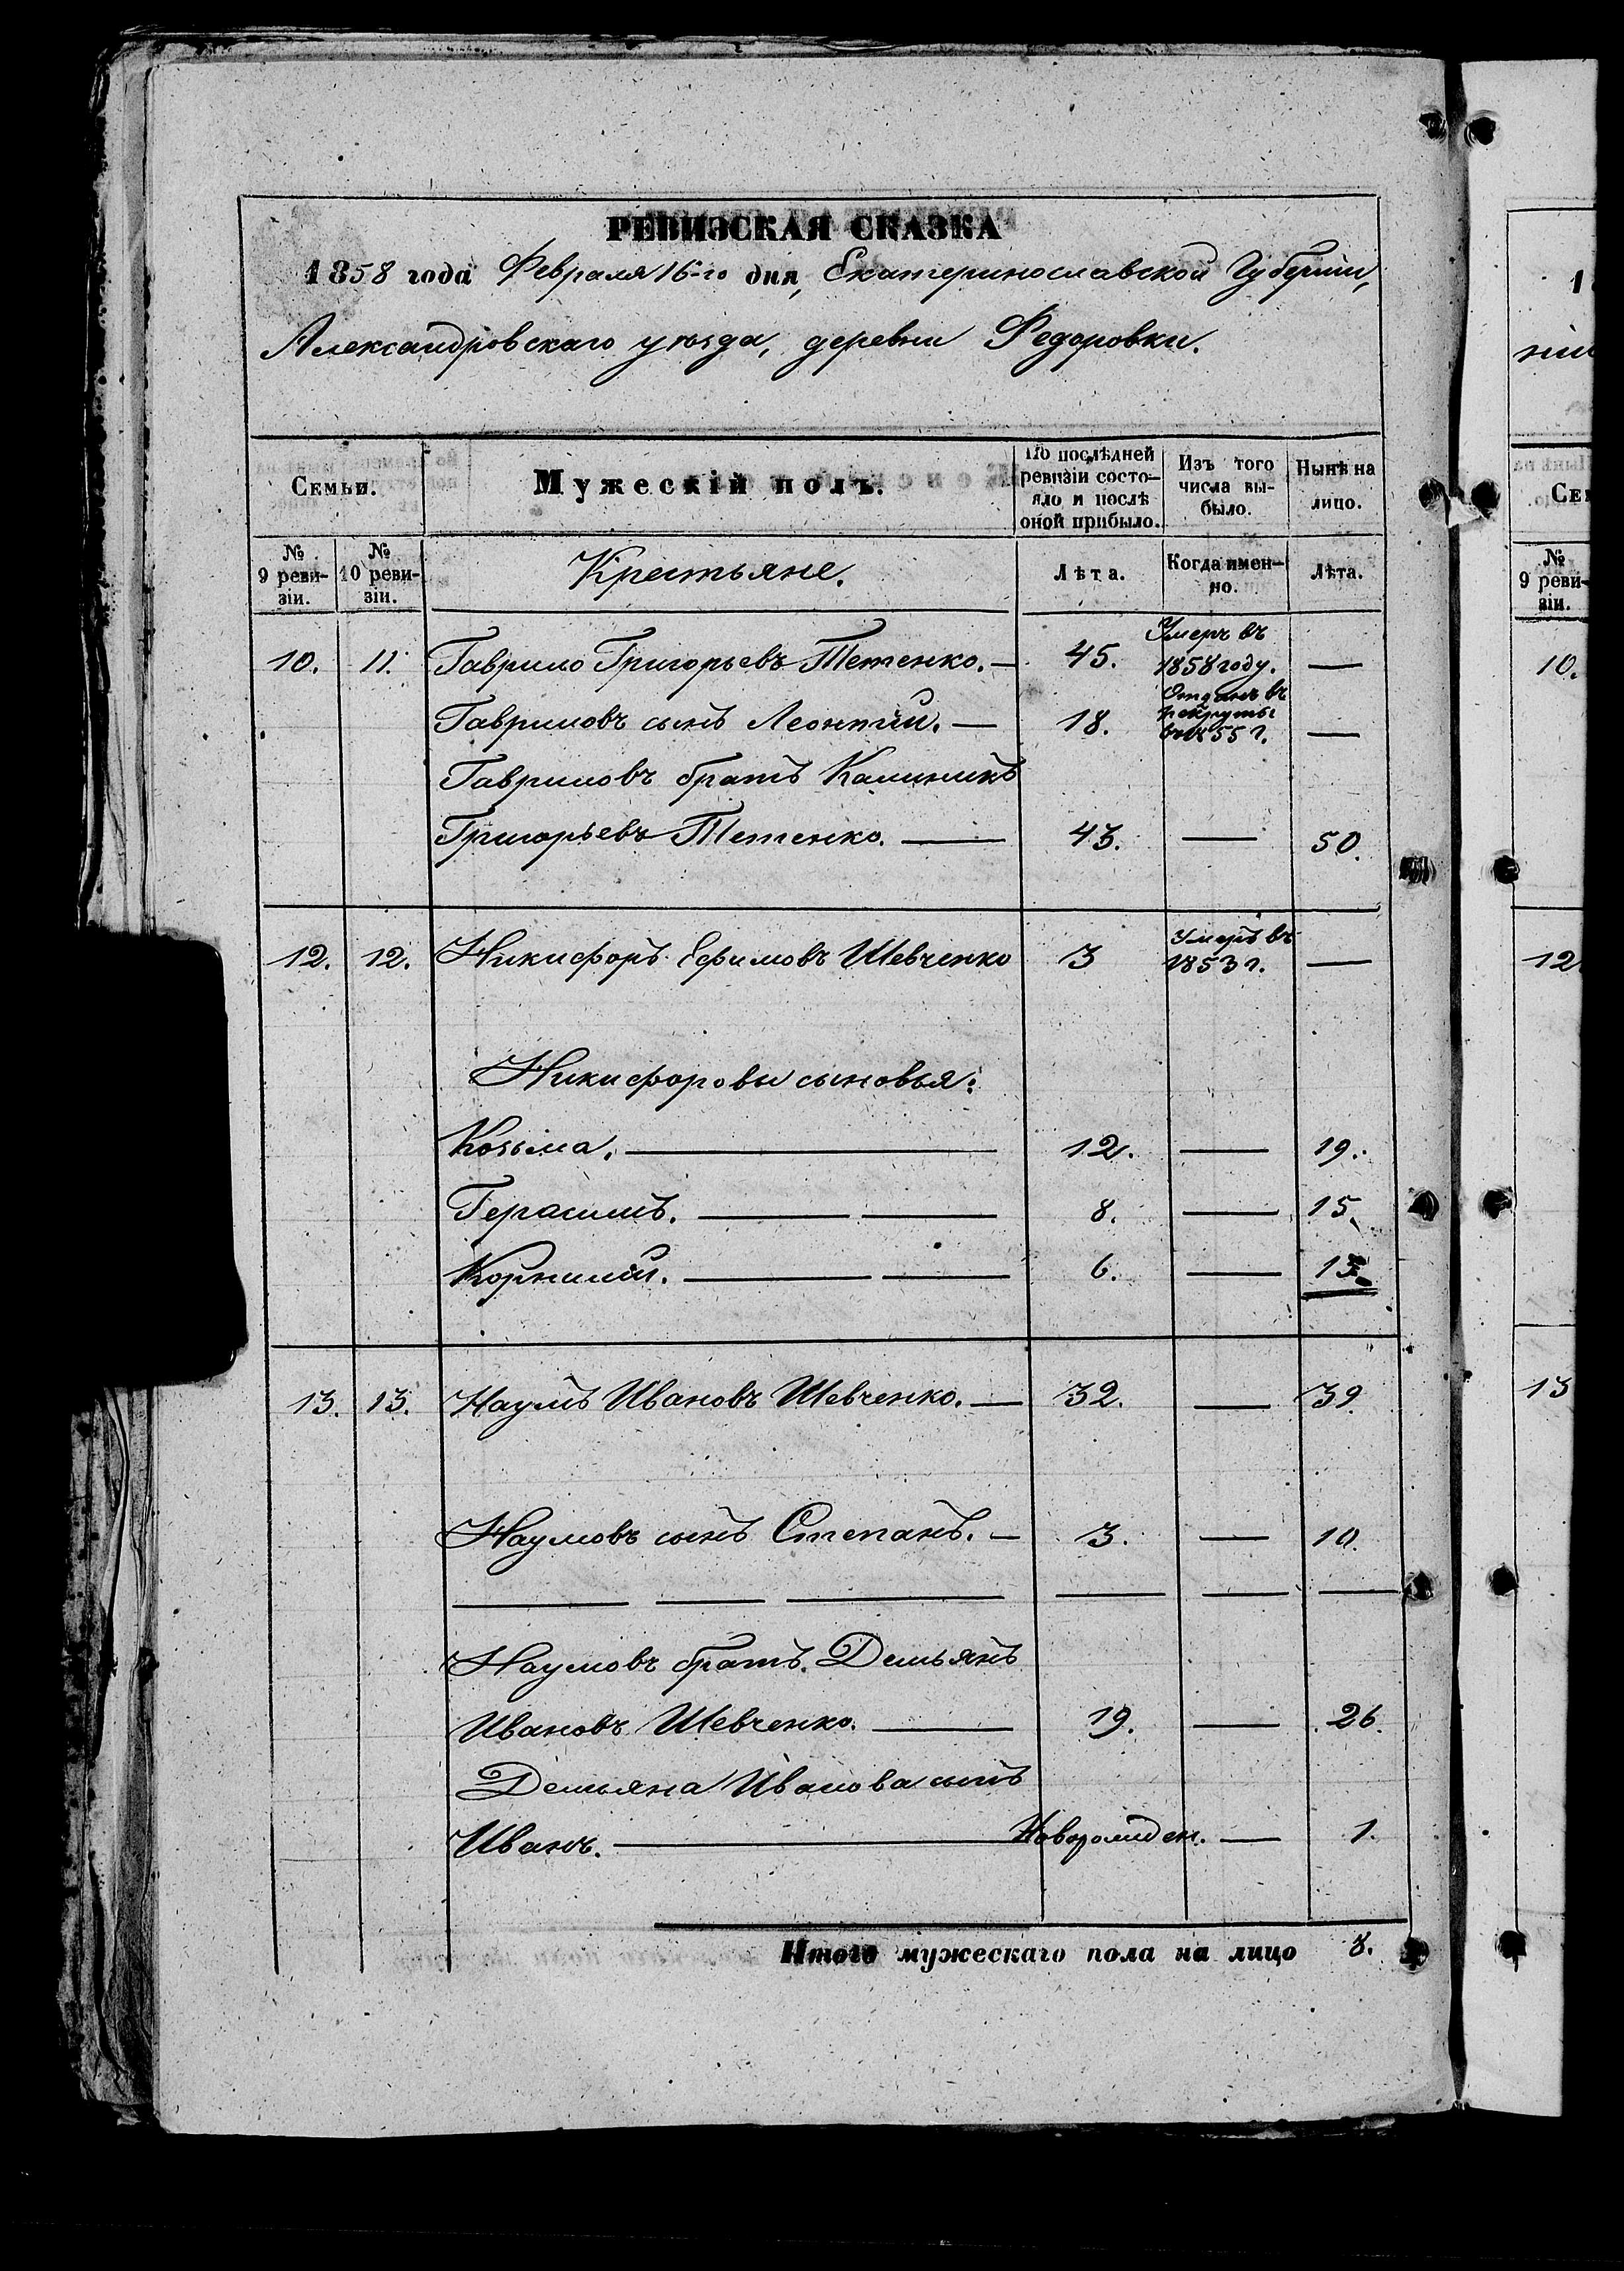 РЕВИЗСКАЯ СКАЗКА
1858 года Февраля 16-го дня, Екатеринославской Губерніи,
Александровскаго уѣзда, деревни Федоровки.
Семьи.
Мужескій полъ.
По послѣдней
ревизіи состо-
яло и послѣ
оной прибыло.
Изъ того
числа вы-
было.
Нынѣ на
лицо.
№
9 реви-
зіи.
№
10 реви-
зіи.
Крестьяне.
Лѣта.
Когда имен-
но.
Лѣта.
10. 11. Гаврило Григорьевъ Тетенко. — 45. Умеръ въ
1858 году. —
Гавриловъ сынъ Леонтій. — 18. Отданъ въ
рекруты
въ 1855 г. —
Гавриловъ братъ Калиникъ
Григорьевъ Тетенко. — 43. — 50.
12. 12. Никифоръ Ефимовъ Шевченко 3 Умеръ въ
1853 г. —
Никифоровы сыновья:
Козьма. — 12. — 19.
Герасимъ. — 8. — 15.
Корнилій. — 6. — 13.
13. 13. Наумъ Ивановъ Шевченко. — 32. — 39.
Наумовъ сынъ Степанъ. — 3. — 10.
Наумовъ братъ Демьянъ
Ивановъ Шевченко. — 19. — 26.
Демьяна Иванова сынъ
Иванъ. — Новорожден. — 1.
Итого мужескаго пола на лицо 8.
1
нии
Сем
№
9 реви-
зіи.
10.
12
13